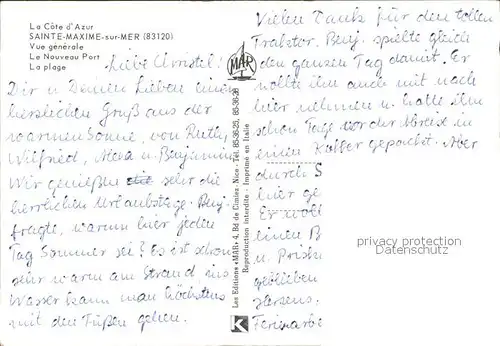 La Côte d'Azur
SAINTE-MAXIME-sur-MER (83120)
Vue générale
Le Nouveau Port
La plage
Liebe Christel!
Dir u Deinen Lieben einen
herzlichen Gruß aus der
warmen Sonne, von Ruth,
Wilfried, u. Benjamin
Wir genießen sehr die
herrlichen Urlaubstage. Benj.
fragte, warum hier jeden
Tag Sommer sei? Es ist schon
sehr warm am Strand ins
Wasser kann man höchstens
mit den Füßen gehen.
MAR
Les Editions «MAR» 4, Bd de Cimiez - Nice - Tél. 85-36-25, 85-36-26
Reproduction interdite - Imprimé en Italie
K
Vielen Dank für den tollen
Traktor. Benj. spielte gleich
den ganzen Tag damit. Er
wollte ihn auch mit nach
hier nehmen u. hatte ihn
schon Tage vor der Abreise in
einen Koffer gepackt. Aber
durch S
hier ge
Er woll
einen B
u.
geblieben
Ferienarbe
privacy protection
Datenschutz